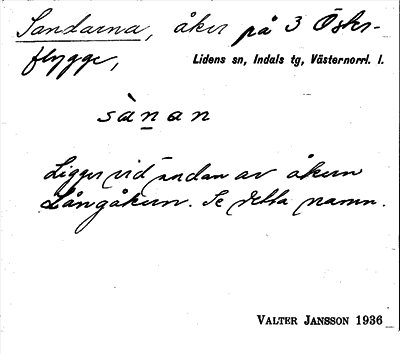 Sandarna, åker på 3 Öster-
flygge,
Lidens sn, Indals tg, Västernorrl. l.
sànan
Ligger vid ändan av åkern
Långåkern. Se detta namn.
VALTER JANSSON 1936